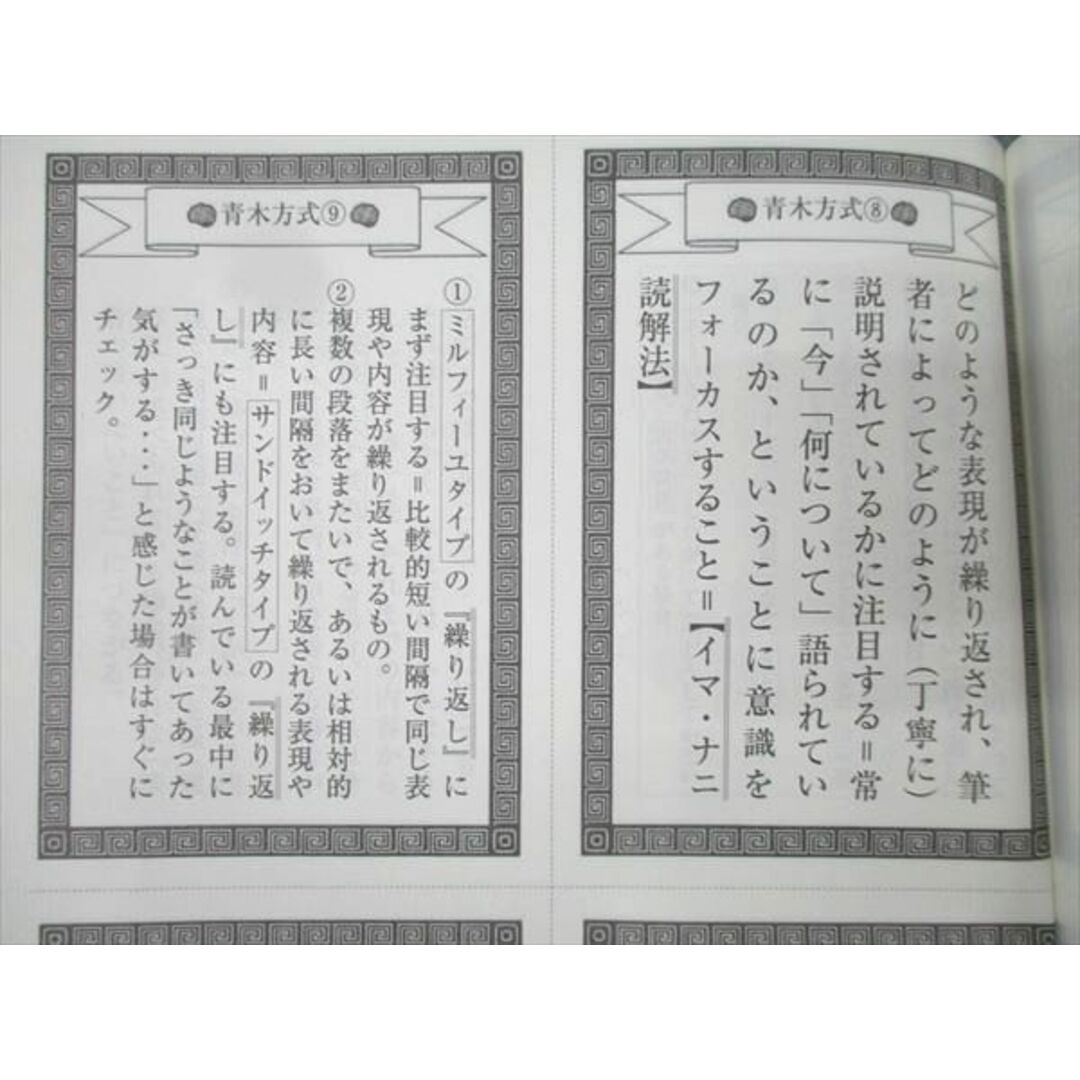 青木方式⑧
どのような表現が繰り返され、筆
者によってどのように（丁寧に）
説明されているかに注目する＝常
に「今」「何について」語られてい
るのか、ということに意識を
フォーカスすること＝【イマ・ナニ
読解法】
青木方式⑨
①ミルフィーユタイプの『繰り返し』に
まず注目する＝比較的短い間隔で同じ表
現や内容が繰り返されるもの。
②複数の段落をまたいで、あるいは相対的
に長い間隔をおいて繰り返される表現や
内容＝サンドイッチタイプの『繰り返
し』にも注目する。読んでいる最中に
「さっき同じようなことが書いてあった
気がする・・・」と感じた場合はすぐに
チェック。